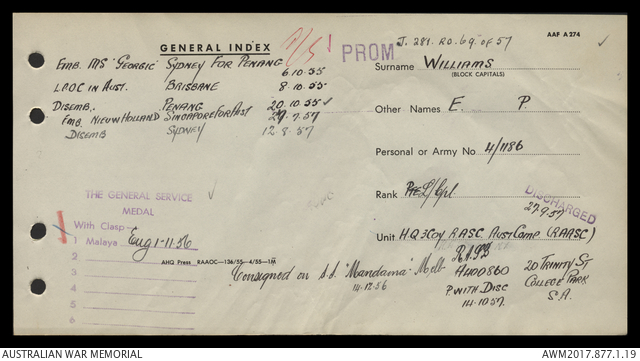 GENERAL INDEX
A/51
PROM
J. 281. RO. 69 of 57
AAF A 274
EMB. MS 'GEORGIC' SYDNEY FOR PENANG
6.10.55
L.P.O.C IN AUST. BRISBANE 8.10.55
DISEMB. PENANG 20.10.55
EMB. NIEUW HOLLAND SINGAPORE FOR AUST 29.7.57
DISEMB SYDNEY 12.8.57
Surname WILLIAMS
(BLOCK CAPITALS)
Other Names E. P.
Personal or Army No 4/1186
Rank Pte L/Cpl
DISCHARGED
27.9.57
Unit H.Q 3 Coy R.A.S.C. Aust Comp (RAASC)
THE GENERAL SERVICE
MEDAL
With Clasp
1 Malaya Eug 1-11.56
2
3
4
5
6
AHQ Press RAAOC—136/55—4/55—1M
Consigned on s.s. "Mandama" Melb
14.12.56
A400860
P. WITH DISC
14.10.57
20 TRINITY ST
COLLEGE PARK
S.A.
AUSTRALIAN WAR MEMORIAL
AWM2017.877.1.19